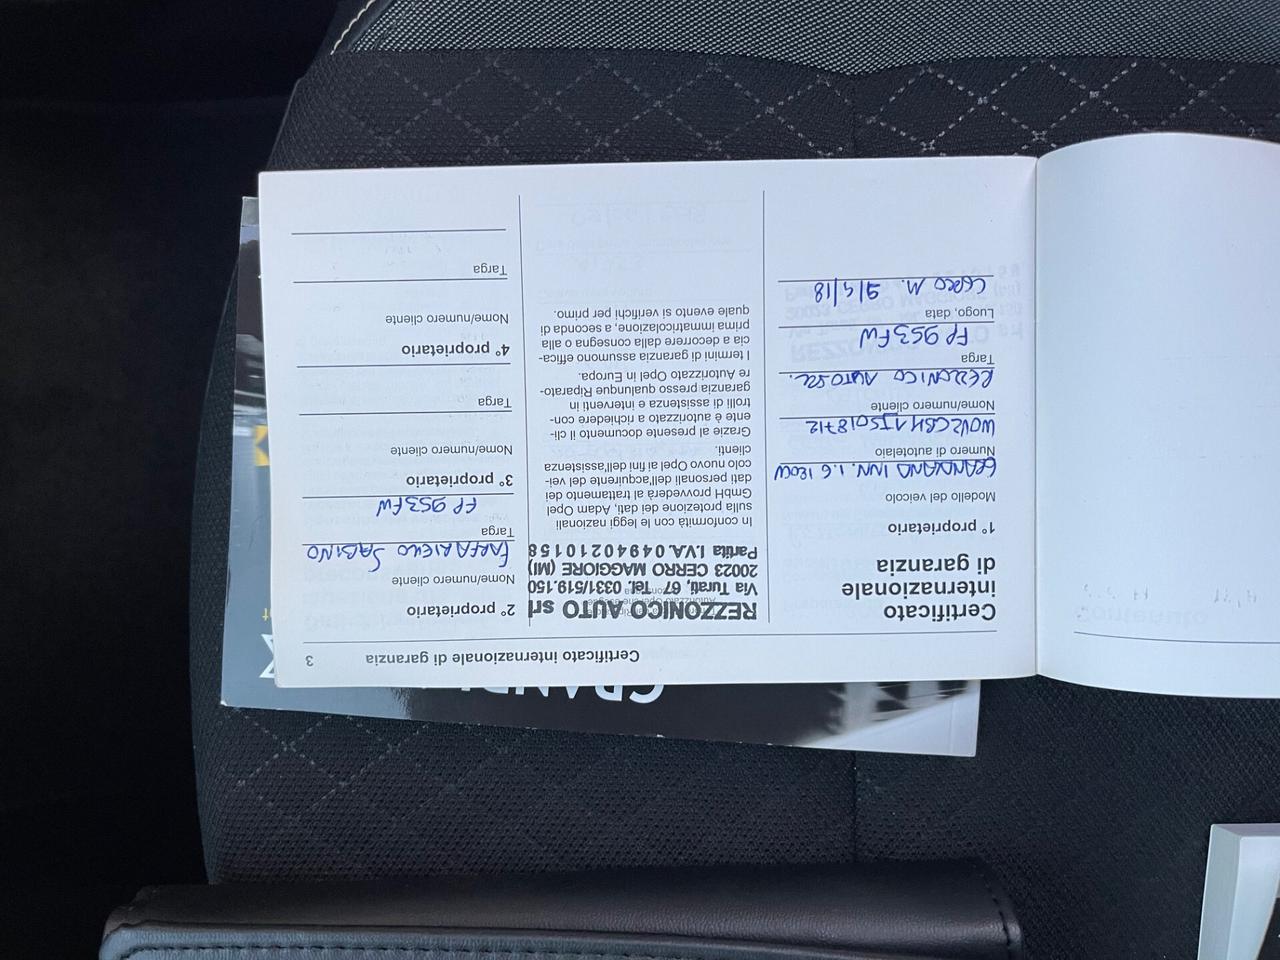 Certificato internazionale di garanzia 3
Certificato
internazionale
di garanzia
1° proprietario
Modello del veicolo
GRANDLAND INN. 1.6 120CV
Numero di autotelaio
W0VZCBH1JS018712
Nome/numero cliente
REZZONICO AUTO SRL.
Targa
FP 953 FW
Luogo, data
CERRO M. 9/4/18
REZZONICO AUTO srl
Via Turati, 67 - Tel. 0331/519.150
20023 CERRO MAGGIORE (MI)
Partita I.V.A. 04940210158
In conformità con le leggi nazionali
sulla protezione dei dati, Adam Opel
GmbH provvederà al trattamento dei
dati personali dell'acquirente del vei-
colo nuovo Opel ai fini dell'assistenza
clienti.
Grazie al presente documento il cli-
ente è autorizzato a richiedere con-
trolli di assistenza e interventi in
garanzia presso qualunque Riparato-
re Autorizzato Opel in Europa.
I termini di garanzia assumono effica-
cia a decorrere dalla consegna o alla
prima immatricolazione, a seconda di
quale evento si verifichi per primo.
2° proprietario
Nome/numero cliente
FARFARIELLO SABINO
Targa
FP 953 FW
3° proprietario
Nome/numero cliente
Targa
4° proprietario
Nome/numero cliente
Targa